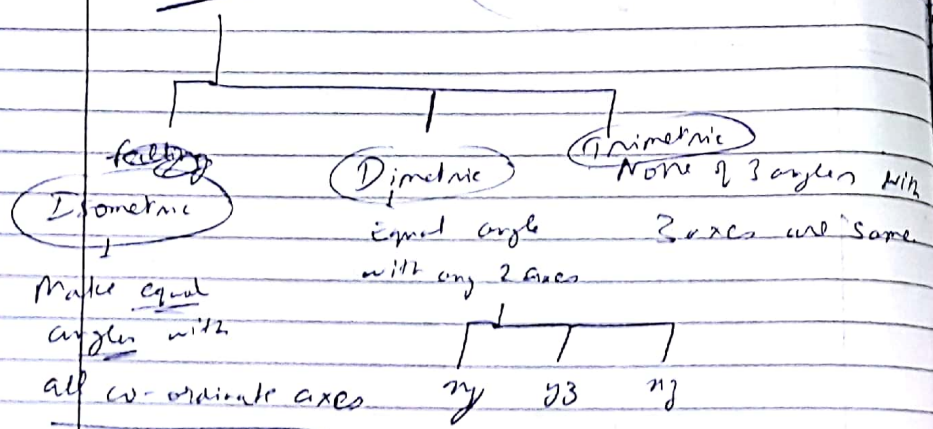 Isometric
Make equal
angles with
all co-ordinate axes
Dimetric
Equal angle
with any 2 axes
xy yz xz
Trimetric
None of 3 angles with
3 axes are same